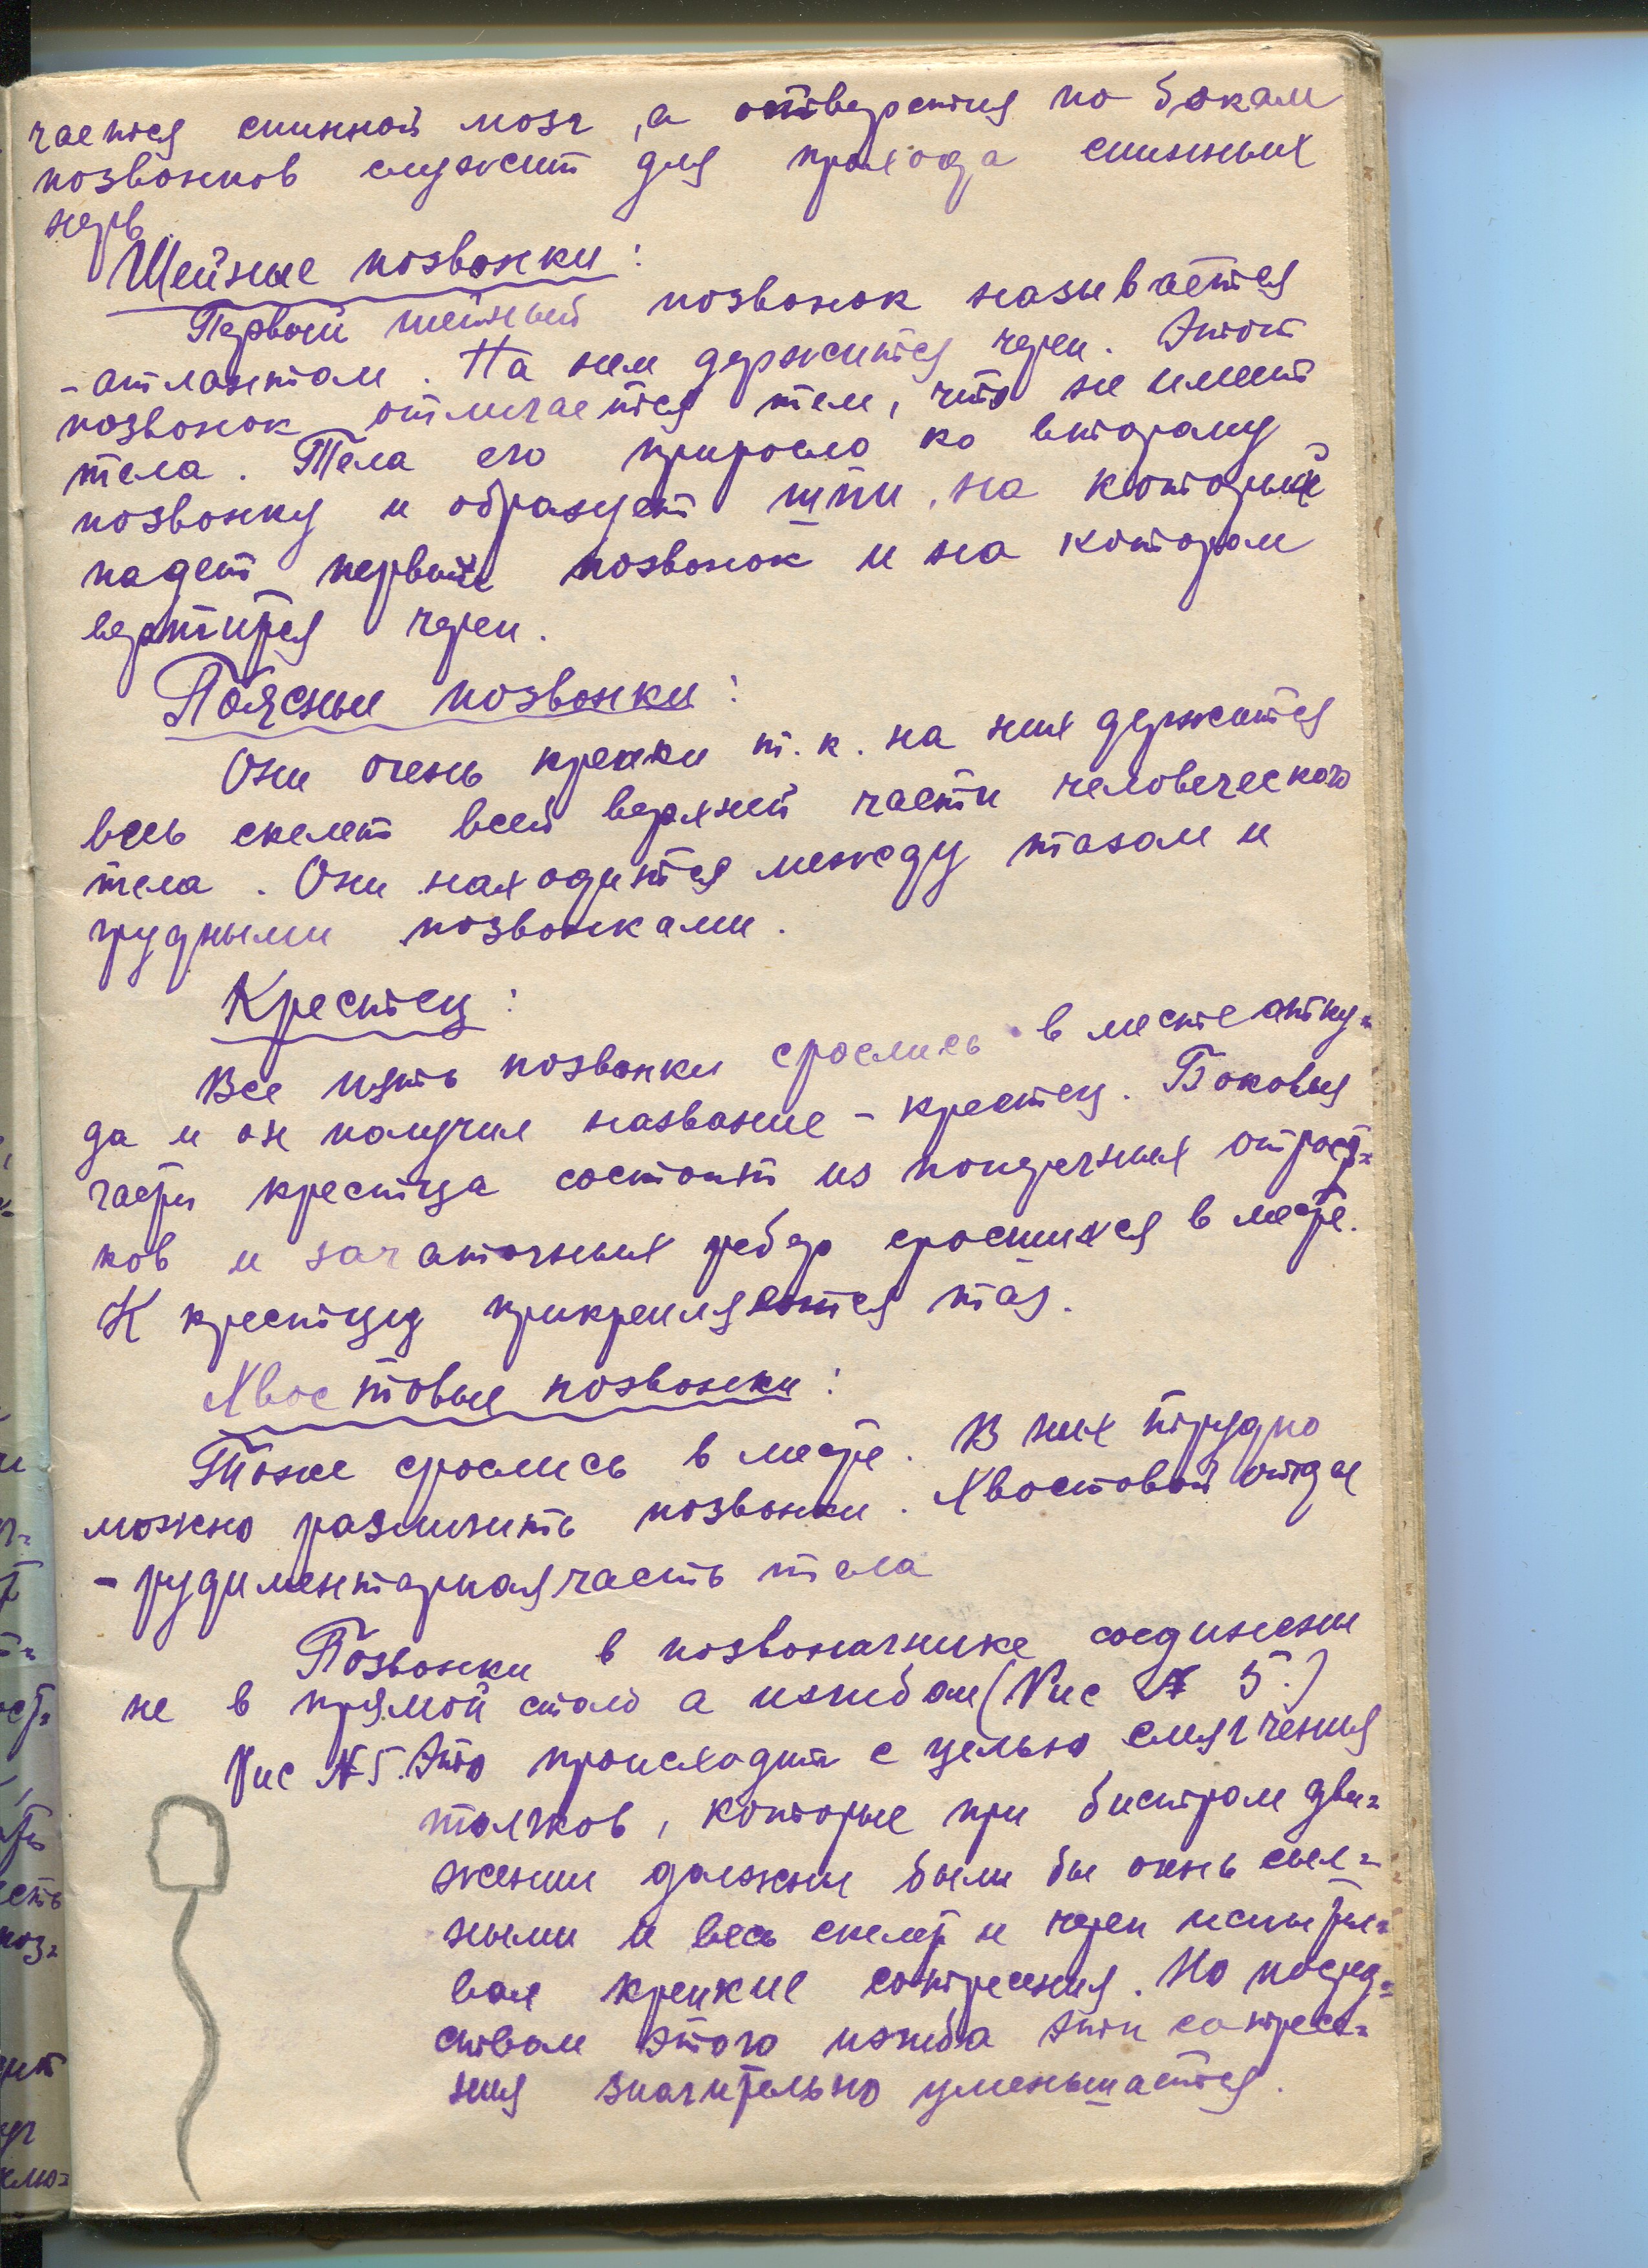 чается спинной мозг, а отверстия по бокам
позвонков служит для прохода спинных
нерв.
Шейные позвонки:
Первый шейный позвонок называется
- атлантом. На нем держится череп. Этот
позвонок отличается тем, что не имеет
тела. Тела его приросло ко второму
позвонку и образует шпи, на который
надет первый позвонок и на котором
вертится череп.
Поясные позвонки:
Они очень крепки т.к. на них держится
весь скелет всей верхней части человеческого
тела. Они находится между тазом и
грудными позвонками.
Крестец:
Все пять позвонки срослись в месте отку=
да и он получил название - крестец. Боковыя
части крестца состоит из поперечных отрост=
ков и зачаточных ребер сросшихся в месте.
К крестцу прикрепляется таз.
Хвостовые позвонки:
Тоже срослись в месте. В них трудно
можно различить позвонки. Хвостовой отдел
- рудиментарная часть тела
Позвонки в позвоночнике соединены
не в прямой столб а изгибом (Рис № 5.)
Рис № 5. Это происходит с целью смягчения
толчков, которые при быстром дви=
жении должны были бы очень сил=
ными и весь скелет и череп испыты=
вал крепкие сотресения. Но посред=
ством этого изгиба эти сотресе=
ния значительно уменьшается.